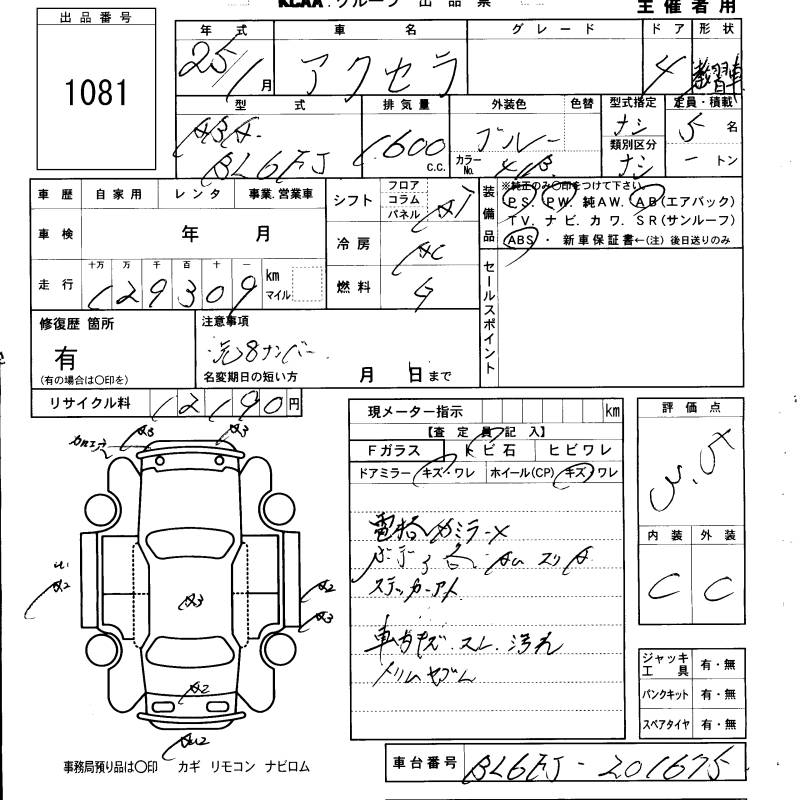 KCAA.グループ 出品票
主催者用
出品番号
1081
年式 車名 グレード ドア 形状
25/1月 アクセラ 4 教習車
型式 排気量 外装色 色替 型式指定 定員・積載
ABA- 1600 c.c. ブルー ナシ 5 名
BL6FJ カラーNo. 41B 類別区分 ナシ - トン
車歴 自家用 レンタ 事業.営業車
車検 年 月
走行 十万 万 千 百 十 一
129309 km マイル
シフト フロア コラム パネル AT
冷房 AC
燃料 G
装備品
※純正のみ〇印をつけて下さい。
PS. PW. 純AW. AB(エアバック)
TV. ナビ. カワ. SR(サンルーフ)
ABS・ 新車保証書←(注) 後日送りのみ
セールスポイント
修復歴 箇所
有
(有の場合は〇印を)
注意事項
元8ナンバー
名変期日の短い方 月 日まで
リサイクル料 12190円
現メーター指示 km
【査定員記入】
Fガラス トビ石 ヒビワレ
ドアミラー キズ・ワレ ホイール(CP) キズ・ワレ
電格ミラーX
ステッカーアト
車内キズ.スレ.汚れ
評価点
3.5X
内装 外装
C C
A3
A3
A2
A3
A2
A3
A2
ジャッキ工具 有・無
パンクキット 有・無
スペアタイヤ 有・無
事務局預り品は〇印 カギ リモコン ナビロム
車台番号 BL6FJ-201675